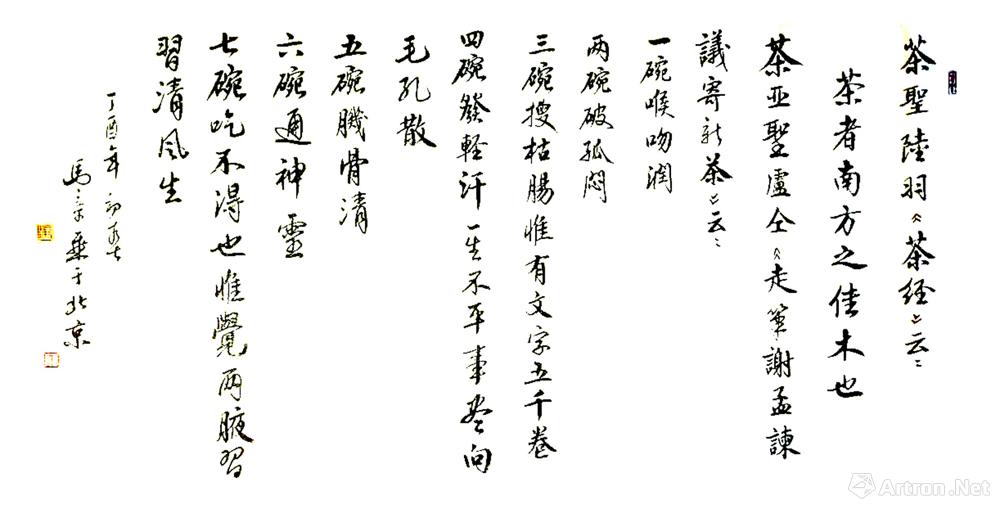 茶聖陸羽《茶経》云:
茶者南方之佳木也
茶亚聖盧仝《走筆謝孟諫
議寄新茶》云:
一碗喉吻潤
两碗破孤悶
三碗搜枯腸惟有文字五千卷
四碗發軽汗一生不平事盡向
毛孔散
五碗肌骨清
六碗通神靈
七碗吃不得也惟覺两腋習
習清風生
丁酉年初春
馬 于北京
Artron.Net